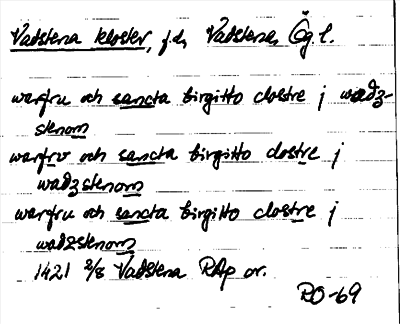 Vadstena kloster, f.d., Vadstena, Ög l.
warfru och sancta birgitto clostre j wadz-
stenom
warfrv och sancta birgitto clostre j
wadzstenom
warfru och sancta birgitto clostre j
wadzstenom
1421 2/8 Vadstena RAp or.
RO-69